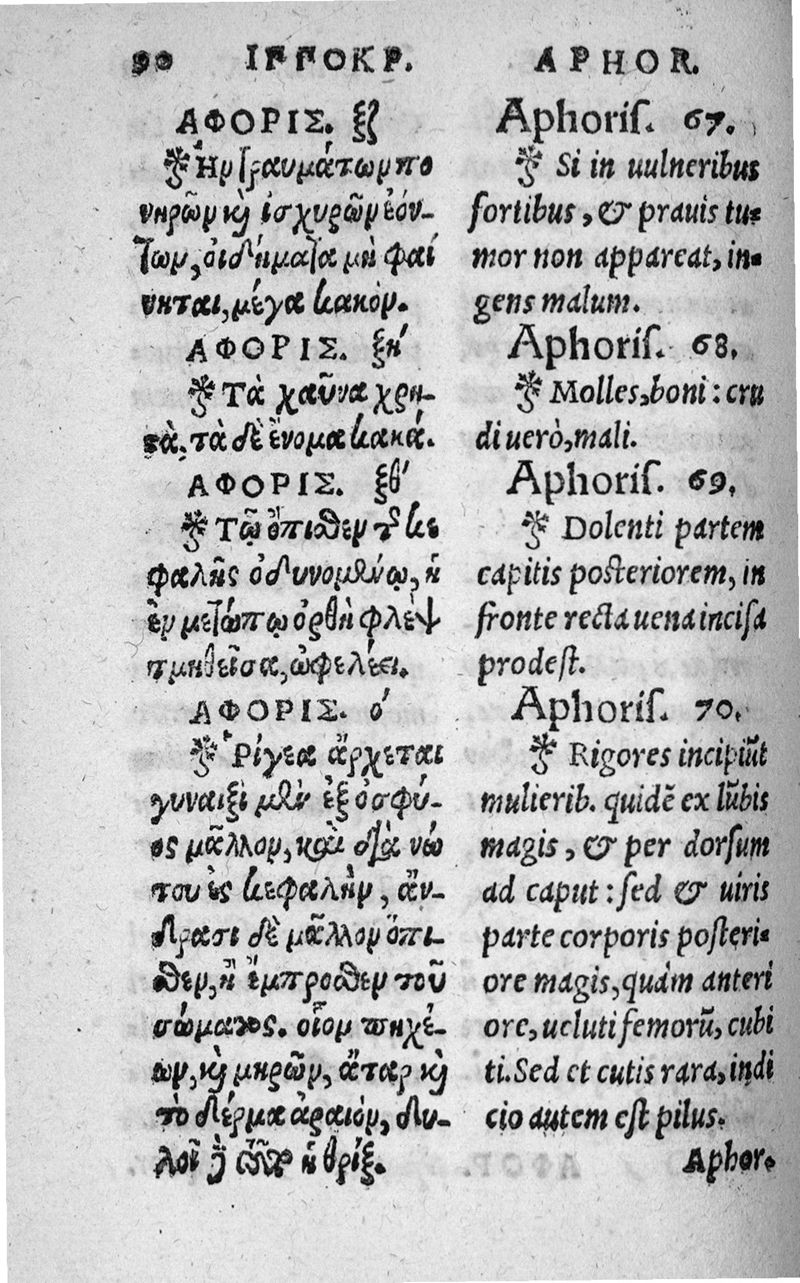 90 ΙΓΓΟΚΡ.
ΑΦΟΡΙΣ. ξζ
Ἢν τραυμάτων πο
νηρῶν κὶ ἰσχυρῶν ἐόν-
των, οἰδήματα μὴ φαί
νηται, μέγα κακόν.
ΑΦΟΡΙΣ. ξή
Τὰ χαῦνα χρη-
τὰ, τὰ δὲ ἔνομα κακά.
ΑΦΟΡΙΣ. ξθ'
Τῷ ὄπιθεν τ κε
φαλῆς ὀδυνομένῳ, ἡ
ἐν μετώπῳ ὀρθὴ φλεψ
τμηθεῖσα, ὠφελέει.
ΑΦΟΡΙΣ. ό
Ῥίγεα ἄρχεται
γυναιξὶ μὲν ἐξ ὀσφύ-
ος μᾶλλον, καὶ διὰ νώ
του ἐς κεφαλὴν, ἄν-
δρασι δὲ μᾶλλον ὄπι-
θεν, ἢ ἔμπροθεν τοῦ
σώματος. οἷον πηχέ-
ων, κὶ μηρῶν, ἄταρ κὶ
τὸ δέρμα ἀραιόν, δη-
λοῖ ἡ θρίξ.
APHOR.
Aphoris. 67.
Si in uulneribus
fortibus, & prauis tu-
mor non appareat, in-
gens malum.
Aphoris. 68.
Molles, boni: cru
di uerò, mali.
Aphoris. 69.
Dolenti partem
capitis posteriorem, in
fronte recta uena incisa
prodest.
Aphoris. 70.
Rigores incipiũt
mulierib. quidẽ ex lũbis
magis, & per dorsum
ad caput: sed & uiris
parte corporis posteri-
ore magis, quàm anteri
ore, ueluti femorũ, cubi
ti. Sed et cutis rara, indi
cio autem est pilus.
Aphor.